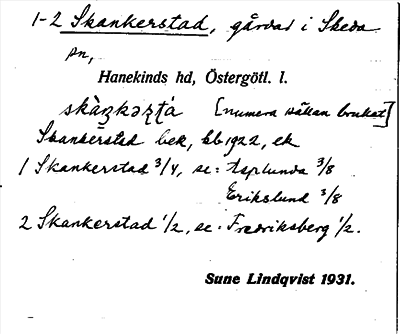 1-2 Skankerstad, gårdar i Skeda
sn,
Hanekinds hd, Östergötl. l.
skàŋkəʂt́a [numera sällan brukat]
Skankerstad bek, kb 1922, ek
1 Skankerstad 3/4, se: Asplunda 3/8
Erikslund 3/8
2 Skankerstad 1/2, se: Fredriksberg 1/2.
Sune Lindqvist 1931.